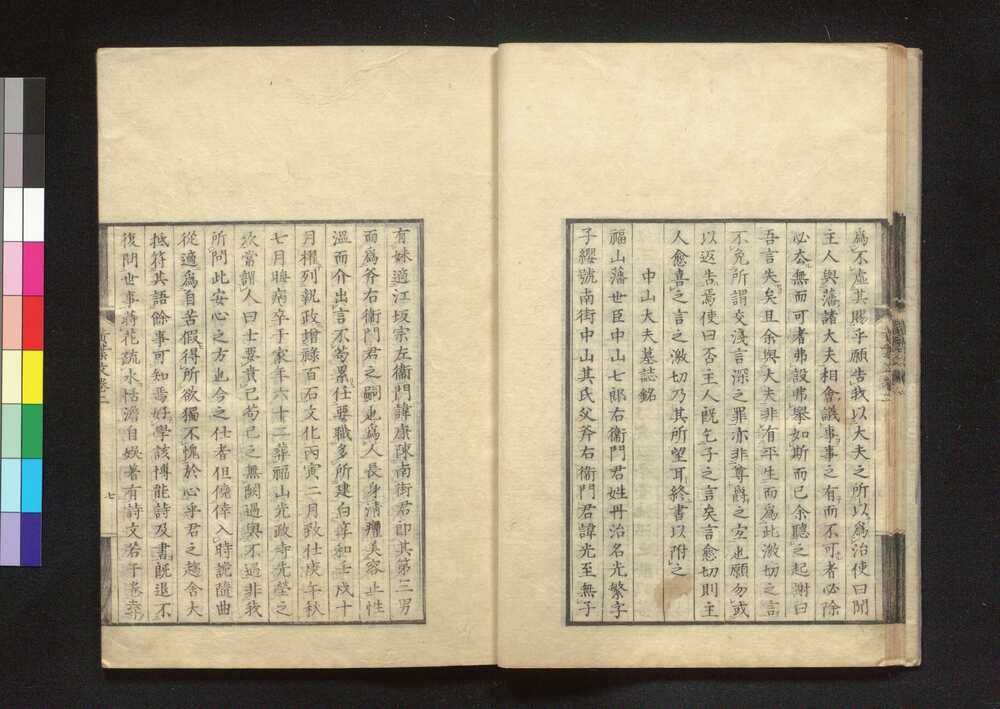 爲不虛其賜乎願告我以大夫之所以爲治使曰聞
主人與藩諸大夫相會議事事之有而不可者必除
必太無而可者弗設弗擧如斯而已余聽之起謝曰
吾言失矣且余與大夫非有平生而爲此激切之言
不免所謂交淺言深之罪亦非尊爵之宜也願勿或
以返告焉使曰否主人既乞子之言矣言愈切則主
人愈喜之言之激切乃其所望耳終書以附之
中山大夫墓誌銘
福山藩世臣中山七郎右衞門君姓丹治名光繁字
子纓號南街中山其氏父斧右衞門君諱光至無子
有妹適江坂宗左衞門諱康陳南街君即其第三男
而爲斧右衞門君之嗣也爲人長身淸癯美容止性
溫而介出言不苟累任要職多所建白享和壬戌十
月擢列執政增祿百石文化丙寅二月致仕庚午秋
七月晦病卒于家年六十二葬福山光政寺先塋之
次嘗謂人曰士要貴己苟己之無闕遇與不遇非我
所問此安心之方也今之仕者但僥倖入時詭隨曲
從適爲自苦假得所欲獨不愧於心乎君之趨舍大
抵符其語餘事可知焉好學該博能詩及書既退不
復問世事蒔花疏水恬澹自娛著有詩文若干卷
七